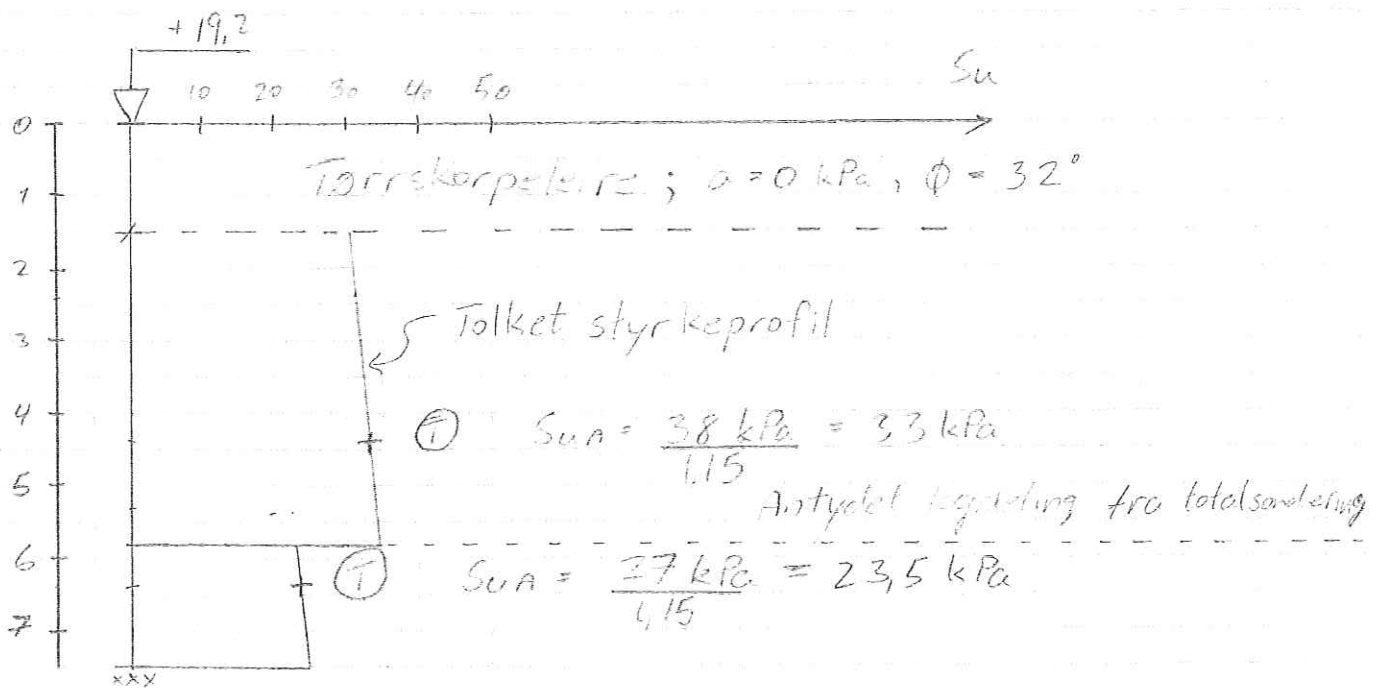 +19,2
10 20 30 40 50
Su
0
Tørrskorpeleire ; a = 0 kPa, ϕ = 32°
1
2
Tolket styrkeprofil
3
4
T SuA = 38 kPa / 1.15 = 33 kPa
5
Antydet lagdeling fra totalsondering
6
T SuA = 27 kPa / 1,15 = 23,5 kPa
7
xxx